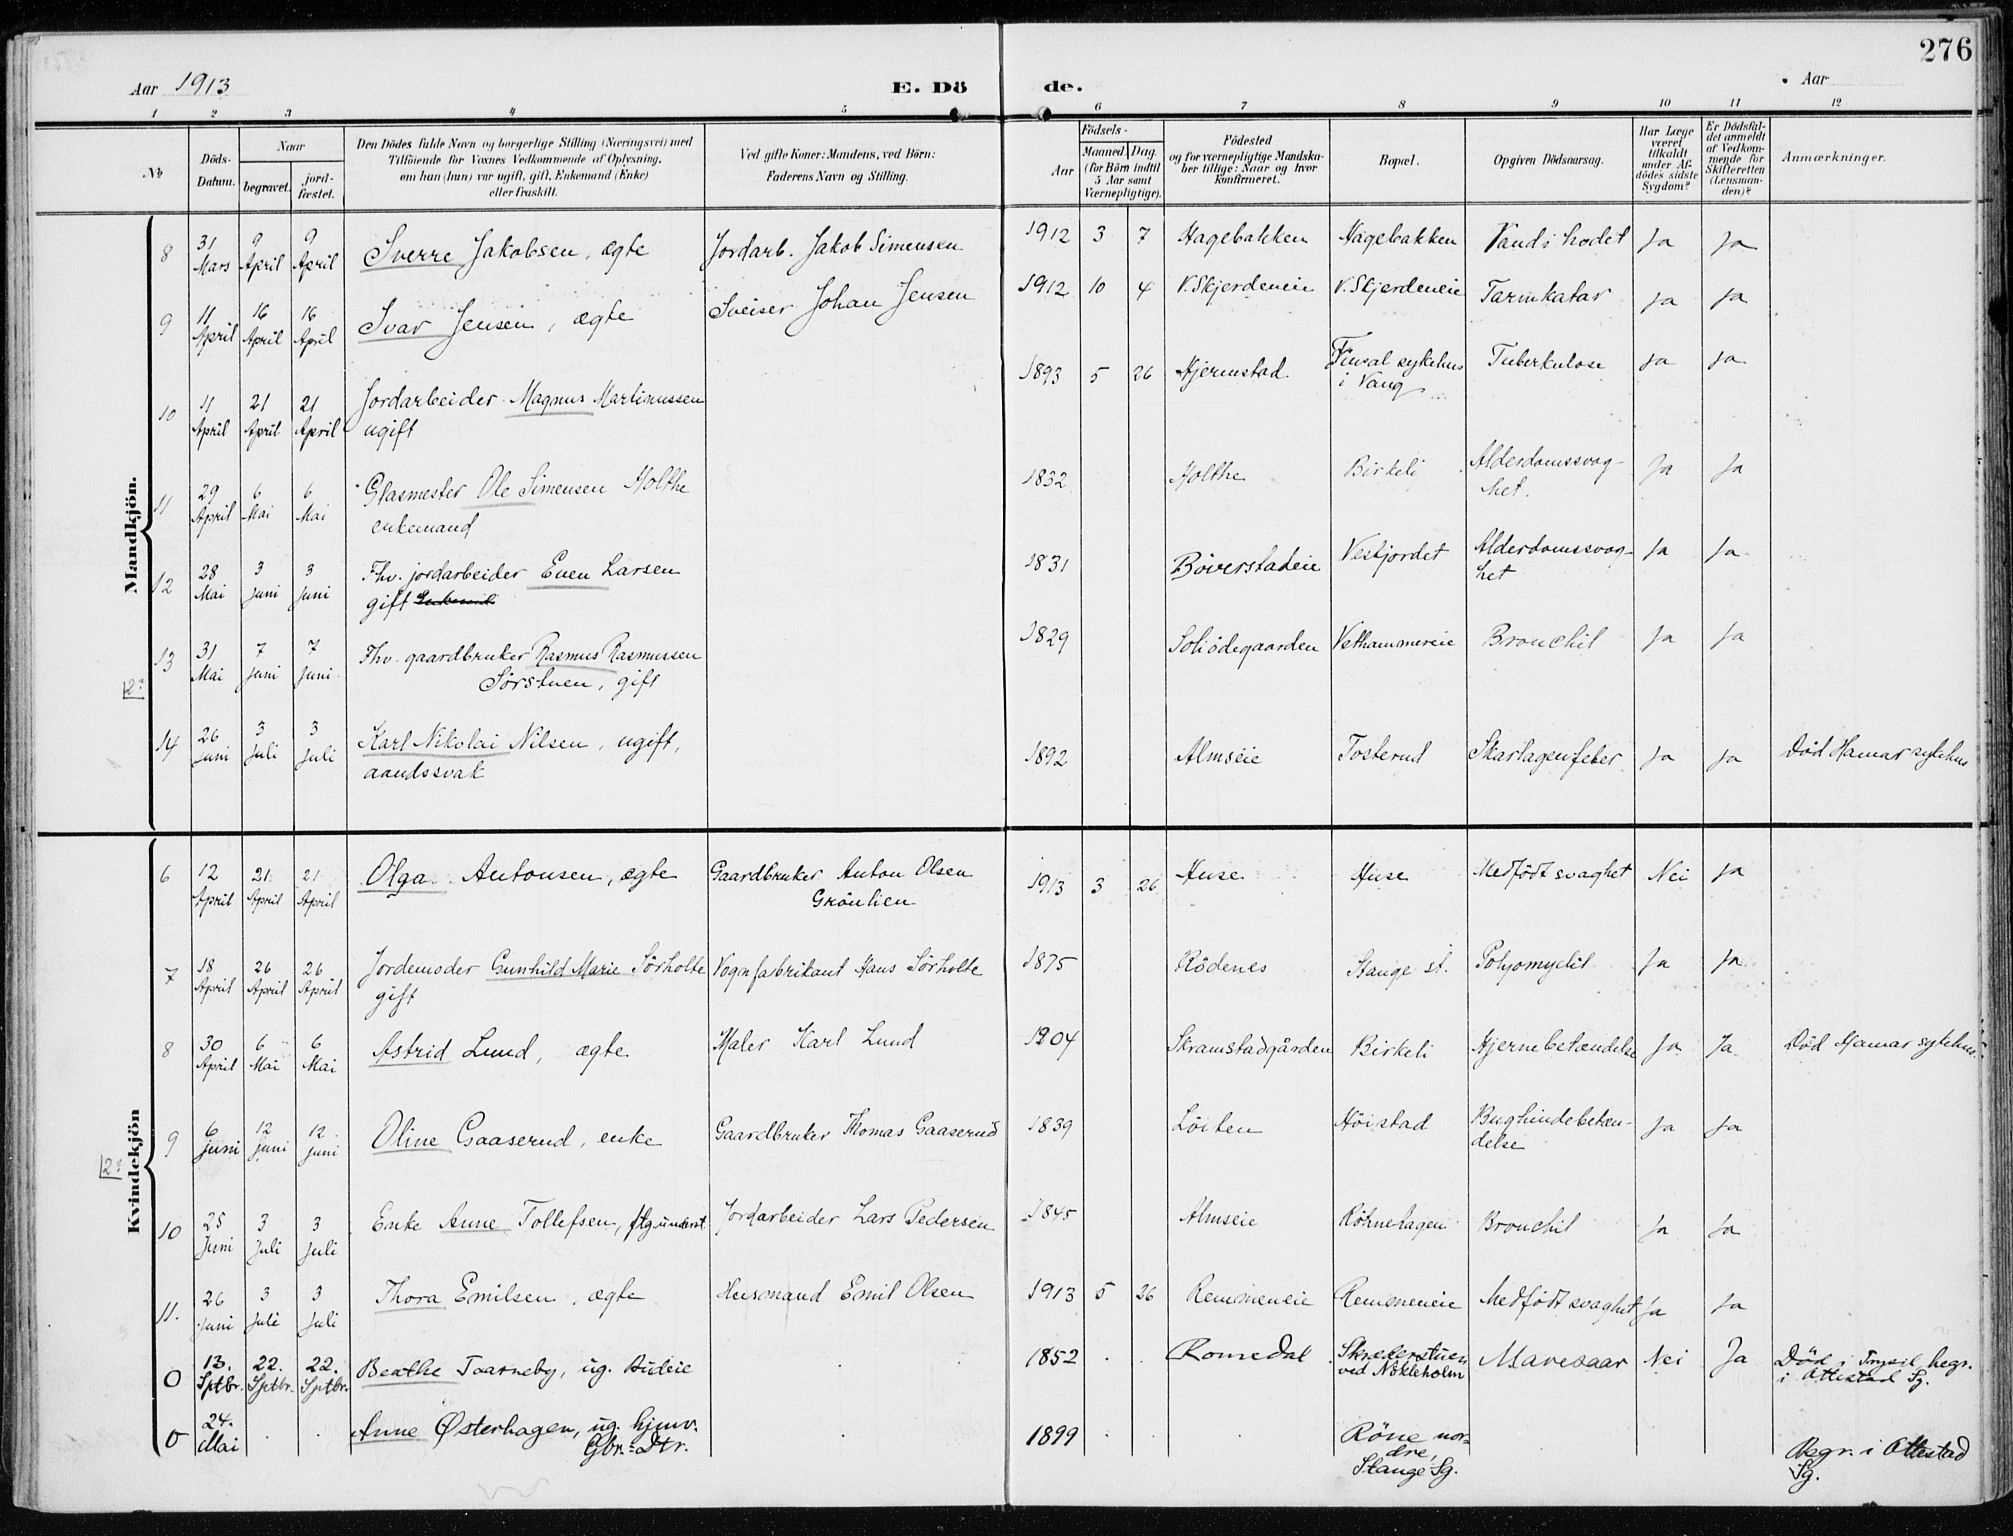 276
Aar 1913 E. Döde. Aar
1 2 3 4 5 6 7 8 9 10 11 12
No
Döds-Datum.
Naar
begravet.
jord-fæstet.
Den Dödes fulde Navn og borgerlige Stilling (Næringsvei) med
Tilföiende for Voxnes Vedkommende af Oplysning,
om han (hun) var ugift, gift, Enkemand (Enke)
eller fraskilt.
Ved gifte Koner: Mandens, ved Börn:
Faderens Navn og Stilling.
Födsels-
Aar
Maaned. Dag.
(for Börn indtil
5 Aar samt
Værnepligtige).
Födested
og for værnepligtige Mandska-
ber tillige: Naar og hvor
Konfirmeret.
Bopæl.
Opgiven Dödsaarsag.
Har Læge
været
tilkaldt
under Af-
dödes sidste
Sygdom?
Er Dödsfal-
det anmeldt
af Vedkom-
mende for
Skifteretten
(Lensman-
den)?
Anmærkninger.
Mandkjön.
8 31 Mars 9 April 9 April Sverre Jakobsen, ægte Jordarb. Jakob Simensen 1912 3 7 Hagebakken Hagebakken Vand i hodet Ja Ja
9 11 April 16 April 16 April Ivar Jensen, ægte Sveiser Johan Jensen 1912 10 4 V. Skjerdeneie V. Skjerdeneie Tarmkatar Ja Ja
10 11 April 21 April 21 April Jordarbeider Magnus Martinussen
ugift 1893 5 26 Hjermstad Finsal sykehus
i Vang Tuberkulose Ja Ja
11 29 April 6 Mai 6 Mai Glasmester Ole Simensen Holthe
enkemand 1832 Holthe Birkeli Alderdomssvag-
het. Ja Ja
12 28 Mai 3 Juni 3 Juni Fhv. jordarbeider Even Larsen
gift 1831 Böverstadeie Vestjordet Alderdomssvag-
het Ja Ja
13 31 Mai 7 Juni 7 Juni Fhv. gaardbruker Rasmus Rasmussen
Sörstuen, gift 1829 Soliödegaarden Vethammereie Bronchit Ja Ja
2?
14 26 Juni 3 Juli 3 Juli Karl Nikolai Nilsen, ugift,
aandssvak 1892 Almseie Tosterud Skarlagensfeber Ja Ja Död Hamar sykehus
Kvindekjön
6 12 April 21 April 21 April Olga Antonsen, ægte Gaardbruker Anton Olsen
Grönlien 1913 3 26 Huse Huse Medfödt svaghet Nei Ja
7 18 April 26 April 26 April Jordemoder Gunhild Marie Sörholte
gift Vognfabrikant Hans Sörholte 1875 Rödenes Stange st. Polyomyelit Ja Ja
8 30 April 6 Mai 6 Mai Astrid Lund, ægte Maler Karl Lund 1904 Skramstadgården Birkeli Hjernebetændelse Ja Ja Död Hamar sykehus
9 6 Juni 12 Juni 12 Juni Oline Gaaserud, enke Gaardbruker Thomas Gaaserud 1839 Löiten Höistad Bughindebetæn-
delse Ja Ja
2?
10 25 Juni 3 Juli 3 Juli Enke Anne Tollefsen, ftg.underst. Jordarbeider Lars Pedersen 1845 Almseie Röhnehagen Bronchit Ja Ja
11. 26 Juni 3 Juli 3 Juli Thora Emilsen, ægte Husmand Emil Olsen 1913 5 26 Remmeneie Remmeneie Medfödt svaghet Ja Ja
0 13. Sptbr. 22. Sptbr. 22. Sptbr. Beathe Taarneby, ug. 1852 Romedal Skræderstuen
ved Nökleholm Mavesaar Nei Ja Död i Trysil, begr.
i Ottestad Sg.
0 24. Mai Anne Østerhagen, ug. hjmv.
Gbr.-Dtr. 1899 Röne nor-
dre,
Stange Sg. Begr. i Ottestad
Sg.